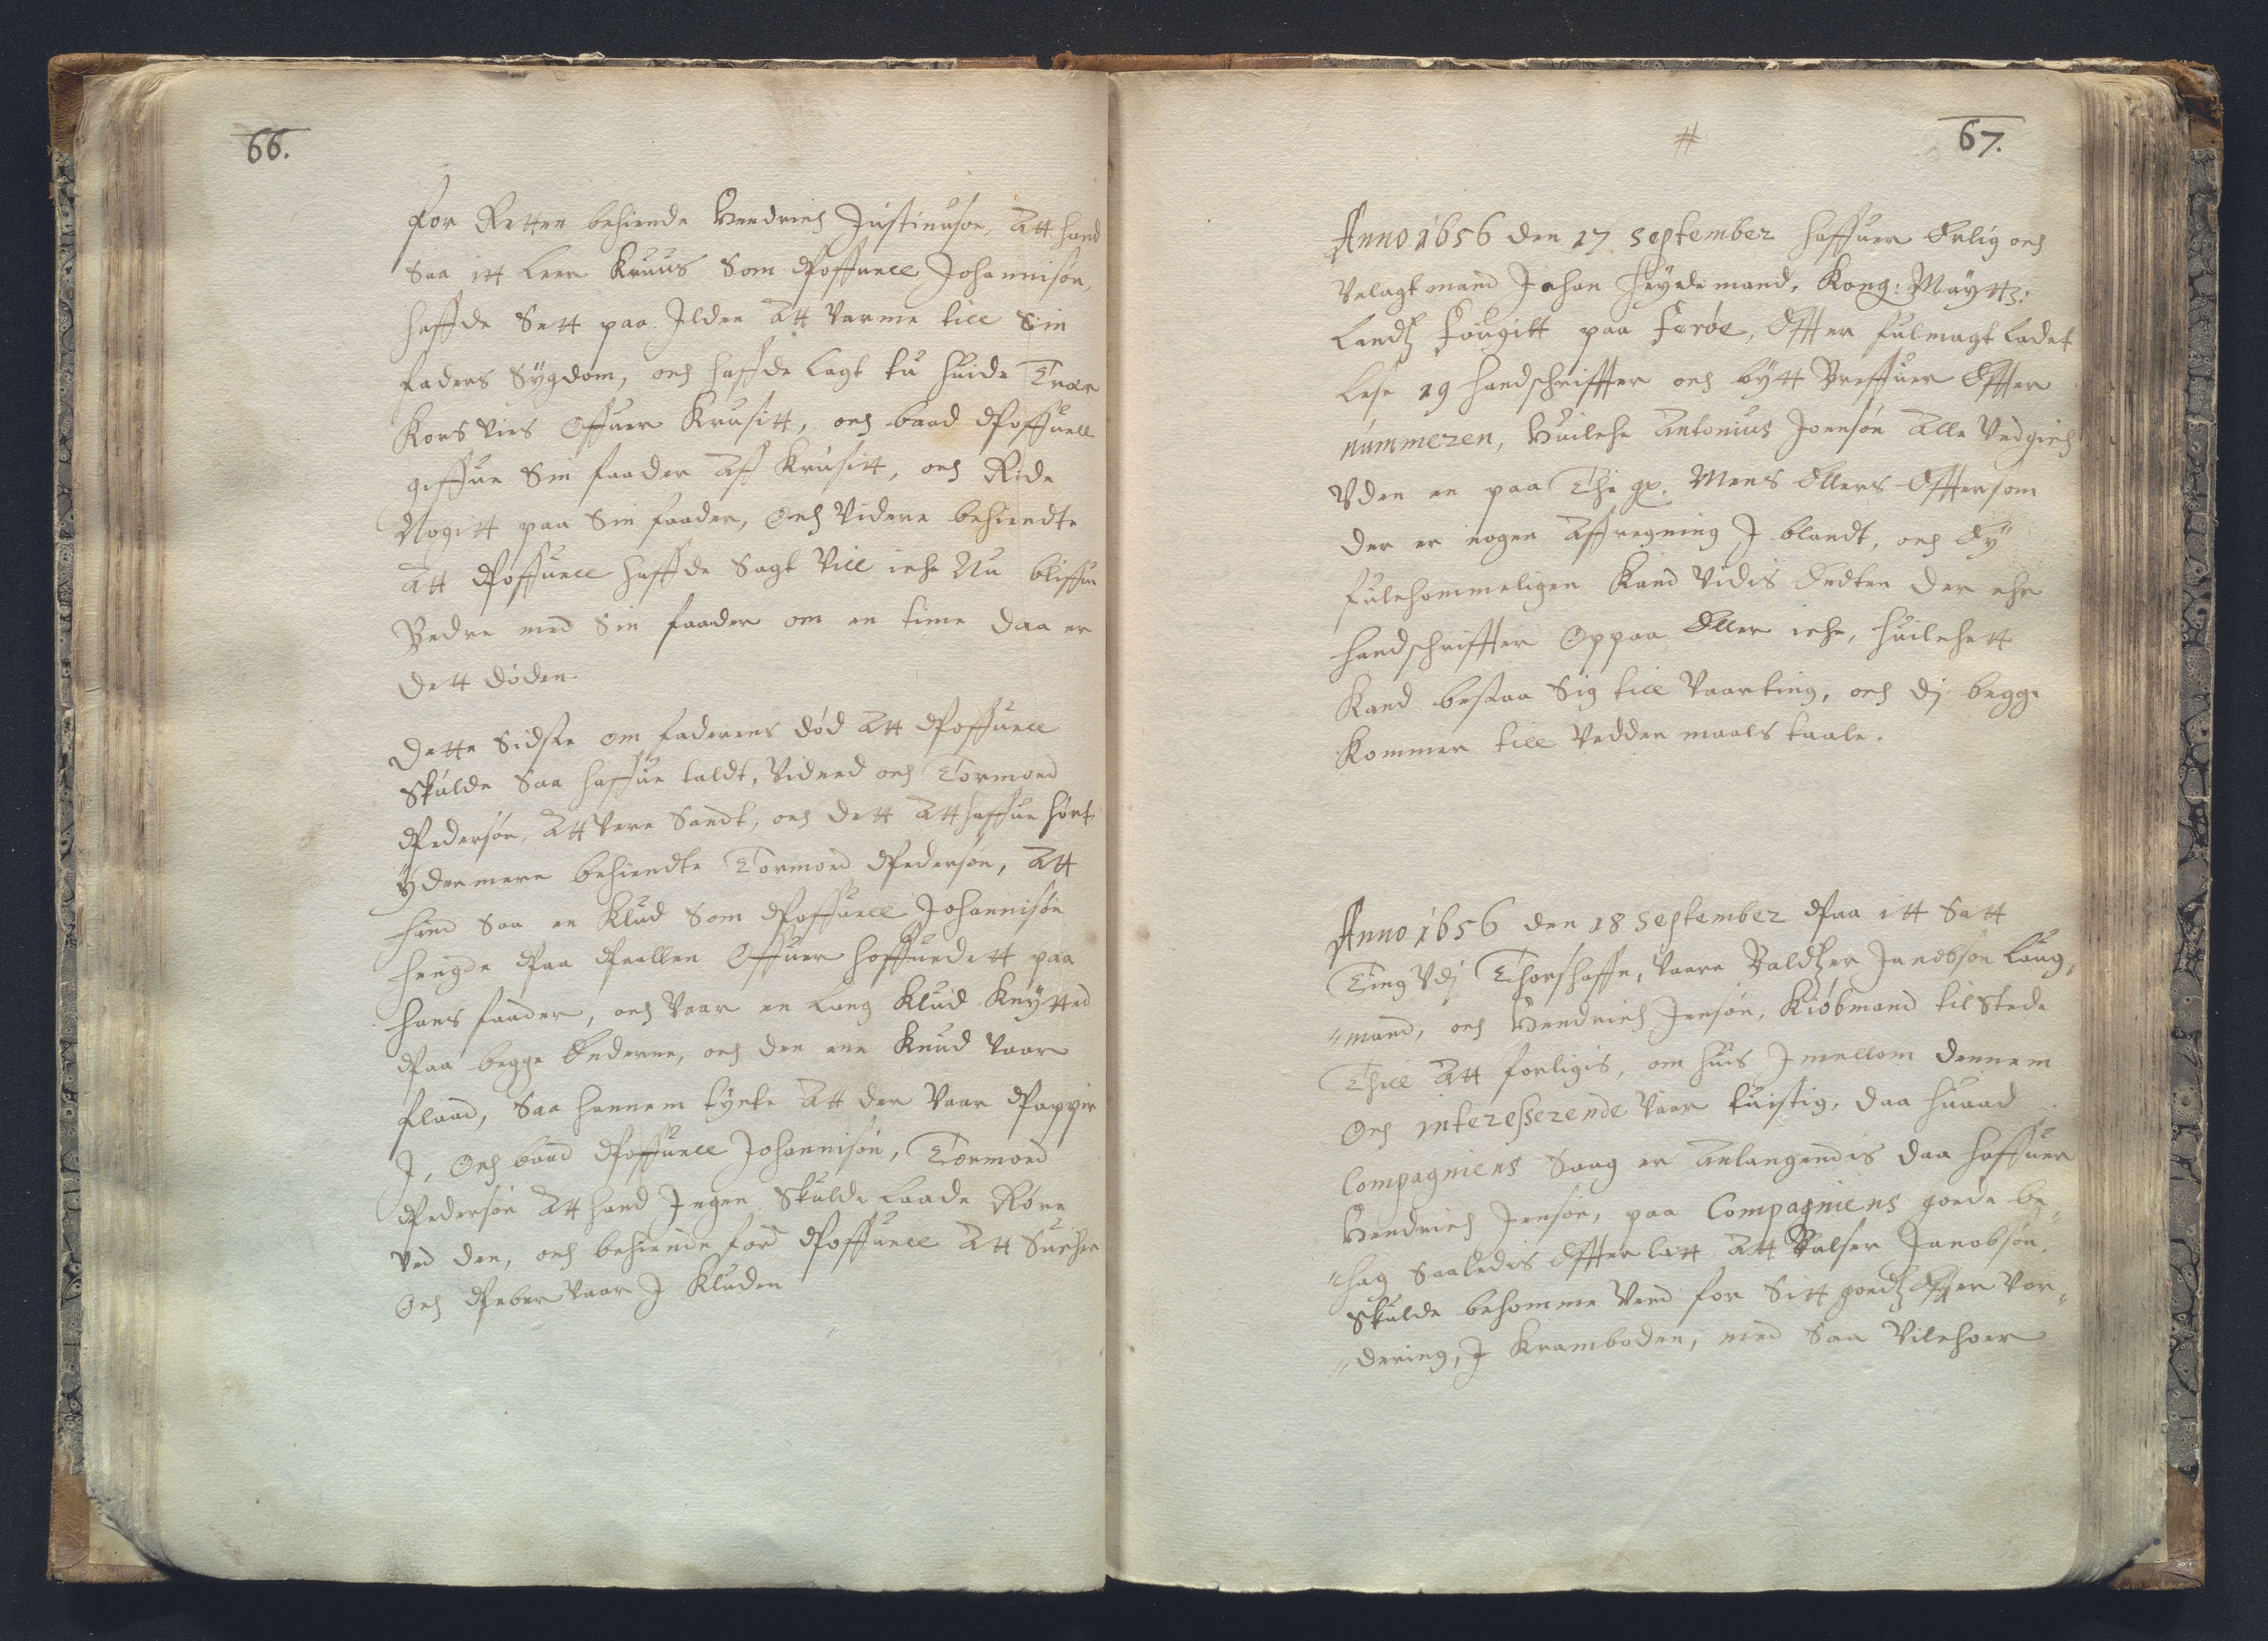 66.
for Retten bekiende Hendrich Justinusøn, Att hand
Saa itt leer Kruus Som Poffuell Johannisøn,
haffde Sett paa Ilden Att Varme till Sin
faders Sygdom, och haffde lagt tu huide Træer
Kors Vies Offuer Krusitt, och baad Poffuell
giffue Sin faader Aff Krusitt, och Ride
Nogitt paa Sin faader, Och Videre bekiendte
Att Poffuell haffde Sagt Vill iche Nu bliffue
Bedre med Sin faader om en time daa er
dett døden.
Dette Sidste om faderens død Att Poffuell
Skulde Saa haffue taldt, Vidned och Tormoed
Pedersøn, Att Vere Sandt, och dett Att haffue hørt
Ydermere bekiendte Tormoed Pedersøn, Att
hand Saa en Klud Som Poffuell Johannisøn
hengde Paa Paallen Offuer hoffuedett paa
hans faader, och Vaar en lang Klud Knytted
Paa begge Enderne, och den ene Knud Vaar
flaad, Saa hannem tyckte Att der Vaar Pappir
I, Och baad Poffuell Johannisøn, Tormoed
Pedersøn Att hand Ingen Skulde Laade Røre
Ved den, och bekiende for Poffuell Att Sucker
Och Peber Vaar I Kluden
67.
Anno 1656 den 17 September haffuer Erlig och
Velagt mand Johan Heydemand, Kong: Maytts:
Landtz Fougitt paa Ferøe, Effter fulmagt ladet
Lese 19 handschriffter och bytt Breffuer Effter
nummeren, Huilche Antonius Joensøn Alle Vedgich
Vden en paa Thi gl. Mens Ellers Effttersom
der er nogen Affregning I blandt, och Ey
fulckommeligen Kand Vidis Endten der ehr
handschriffter Oppaa Eller iche, huilchett
Kand bestaa Sig till Vaarting, och dj begge
Kommer till Vedder maals taale.
Anno 1656 den 18 September Paa itt Satt
Ting Vdj Thorshaffn, Vaare Baldtzer Jacobsøn Laug,,
,,mand, och Hendrich Jensøn, Kiøbmand tilstede
Thill Att forligis, om huis I mellom dennem
Och interesserende Vaar tuistig, daa huaad
Compagniens Saag er Anlangendis daa haffuer
Hendrich Jensøn, paa Compagniens goede be,,
,,hag Saaledis Effterlatt Att Balser Jacobsøn,
Skulde bekomme Verd for Sitt goedtz Effter Vor,,
,,dering, I Kramboden, med Saa Vilchoer